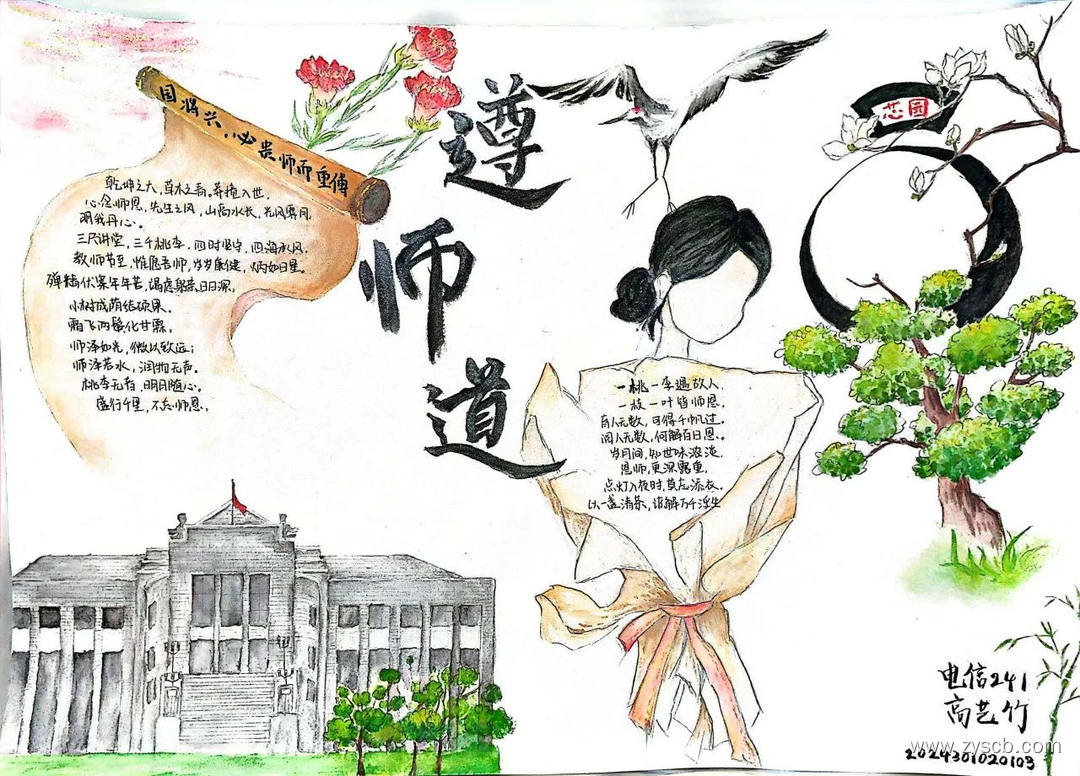 国将兴，必贵师而重傅
乾坤之大，草木之青。莽撞入世，
心念师恩，先生之风，山高水长，光风霁月，
明我丹心。
三尺讲堂，三千桃李，四时坚守，四海承风。
教师节至，惟愿吾师，岁岁康健，炳如日星。
殚精伏案年年苦，竭虑躬耕日日深。
小树成荫结硕果，
霜飞两鬓化甘霖。
师泽如光，微以致远；
师泽若水，润物无声。
桃李无言，明月随心。
盛行千里，不忘师恩。
遵
师
道
芯园
一桃一李遇故人，
一枝一叶皆师恩。
百人无数，可得千帆过。
阅人无数，何解百日恩。
岁月间，知世味浓淡，
恩师，更深露重，
点灯入夜时，莫忘添衣。
以一盏清茶，谁解万千浮生
电信241
高艺竹
2024301020103
www.zyscb.com